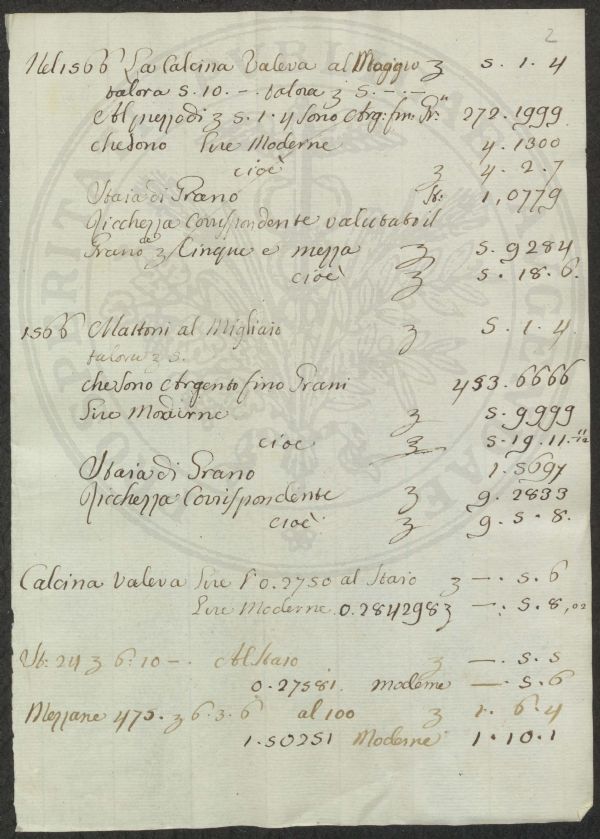 Nel 1566 La Calcina Valeva al Moggio £ 5. 1. 4
valora 5. 10. –. talora £ 5. –. –
Al prezzo di £ 5. 1. 4 sono Arg: fin: Gr: 272.1999
che sono Lire Moderne 4. 1300
cioè £ 4. 2. 7
Staia di Grano St: 1,0779
Ricchezza Corrispondente valutato il
Grano £ Cinque e mezza £ 5. 9284
cioè £ 5. 18. 6.
1566 Mattoni al Migliaio £ 5. 1. 4.
talora £ 5.
che sono Argento fino Grani 453.6666
Lire Moderne £ 5. 9999
cioe £ 5. 19. 11.
Staia di Grano 1. 5697
Ricchezza Corrispondente £ 9. 2833
cioè £ 9. 5. 8.
Calcina Valeva Lire 0.2750 al Staio £ –. 5. 6
Lire Moderne 0.284298 £ –. 5. 8,02
St: 24 £ 6: 10 –. Al Staio £ –. 5. 5
0.27581. moderne –. 5. 6
Mezzane 475. £ 6. 3. 6 al 100 £ 1. 6. 4
1.50251 Moderne 1. 10. 1